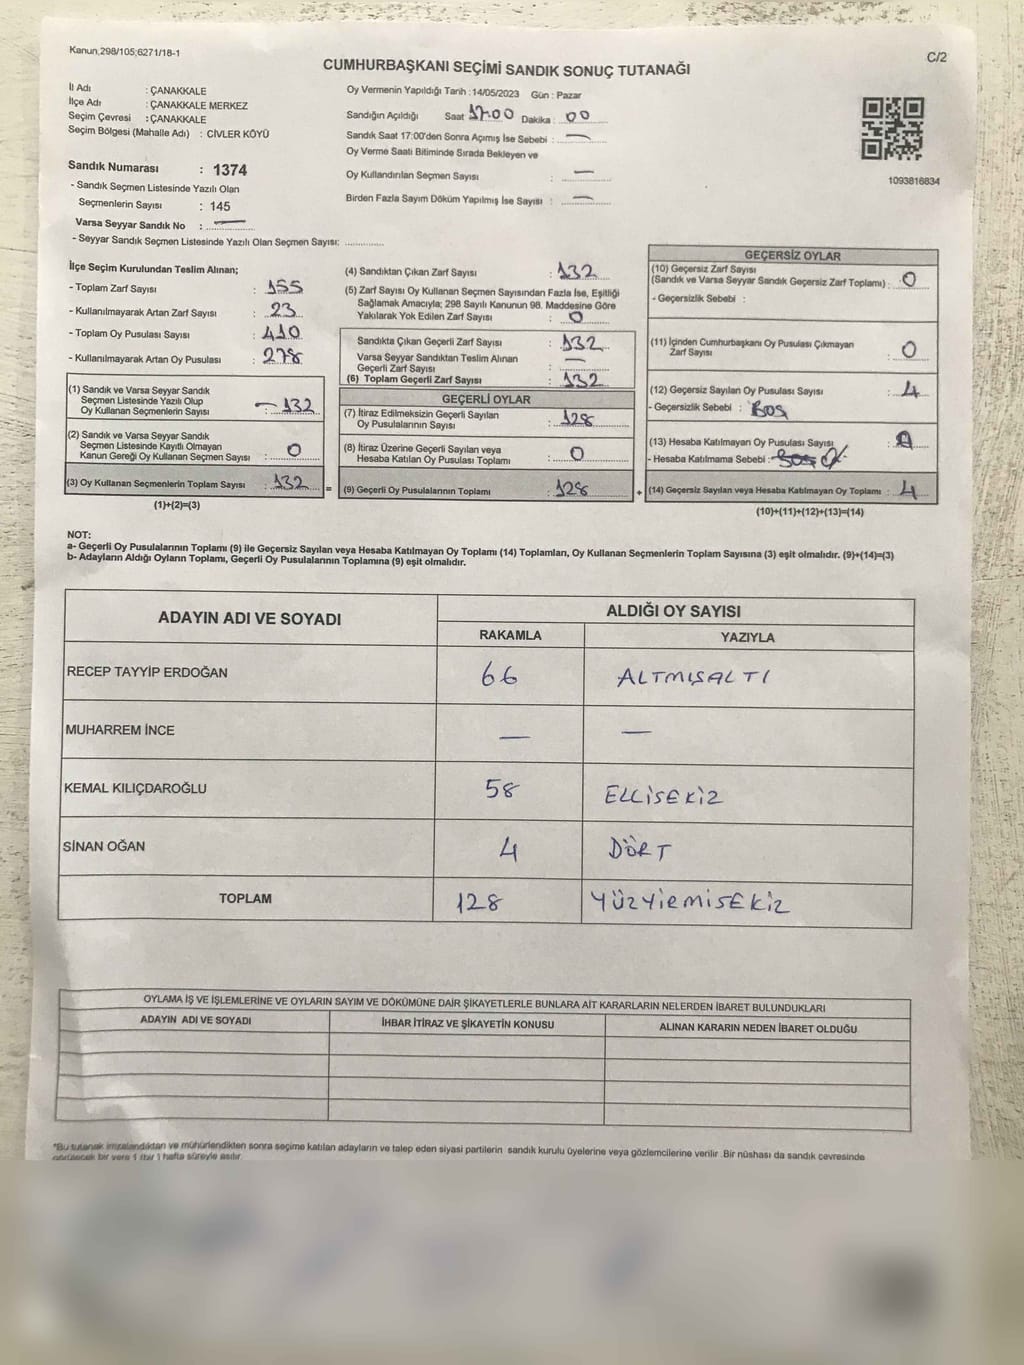 Kanun,298/105;6271/18-1
C/2
CUMHURBAŞKANI SEÇİMİ SANDIK SONUÇ TUTANAĞI
İl Adı : ÇANAKKALE
İlçe Adı : ÇANAKKALE MERKEZ
Seçim Çevresi : ÇANAKKALE
Seçim Bölgesi (Mahalle Adı) : CİVLER KÖYÜ
Sandık Numarası : 1374
- Sandık Seçmen Listesinde Yazılı Olan
Seçmenlerin Sayısı : 145
Varsa Seyyar Sandık No : —
- Seyyar Sandık Seçmen Listesinde Yazılı Olan Seçmen Sayısı: ..............
Oy Vermenin Yapıldığı Tarih : 14/05/2023 Gün : Pazar
Sandığın Açıldığı Saat 17.00 Dakika : 00
Sandık Saat 17:00'den Sonra Açımış İse Sebebi : —
Oy Verme Saati Bitiminde Sırada Bekleyen ve
Oy Kullandırılan Seçmen Sayısı : —
Birden Fazla Sayım Döküm Yapılmış İse Sayısı : —
1093816834
İlçe Seçim Kurulundan Teslim Alınan;
- Toplam Zarf Sayısı : 155
- Kullanılmayarak Artan Zarf Sayısı : 23
- Toplam Oy Pusulası Sayısı : 410
- Kullanılmayarak Artan Oy Pusulası : 278
(1) Sandık ve Varsa Seyyar Sandık
Seçmen Listesinde Yazılı Olup
Oy Kullanan Seçmenlerin Sayısı : 132
(2) Sandık ve Varsa Seyyar Sandık
Seçmen Listesinde Kayıtlı Olmayan
Kanun Gereği Oy Kullanan Seçmen Sayısı : 0
(3) Oy Kullanan Seçmenlerin Toplam Sayısı : 132
(1)+(2)=(3)
(4) Sandıktan Çıkan Zarf Sayısı : 132
(5) Zarf Sayısı Oy Kullanan Seçmen Sayısından Fazla İse, Eşitliği
Sağlamak Amacıyla; 298 Sayılı Kanunun 98. Maddesine Göre
Yakılarak Yok Edilen Zarf Sayısı : 0
Sandıkta Çıkan Geçerli Zarf Sayısı : 132
Varsa Seyyar Sandıktan Teslim Alınan
Geçerli Zarf Sayısı : —
(6) Toplam Geçerli Zarf Sayısı : 132
GEÇERLİ OYLAR
(7) İtiraz Edilmeksizin Geçerli Sayılan
Oy Pusulalarının Sayısı : 128
(8) İtiraz Üzerine Geçerli Sayılan veya
Hesaba Katılan Oy Pusulası Toplamı : 0
= (9) Geçerli Oy Pusulalarının Toplamı : 128
GEÇERSİZ OYLAR
(10) Geçersiz Zarf Sayısı
(Sandık ve Varsa Seyyar Sandık Geçersiz Zarf Toplamı) : 0
- Geçersizlik Sebebi :
(11) İçinden Cumhurbaşkanı Oy Pusulası Çıkmayan
Zarf Sayısı : 0
(12) Geçersiz Sayılan Oy Pusulası Sayısı : 4
- Geçersizlik Sebebi : BOŞ
(13) Hesaba Katılmayan Oy Pusulası Sayısı :
- Hesaba Katılmama Sebebi :
+ (14) Geçersiz Sayılan veya Hesaba Katılmayan Oy Toplamı : 4
(10)+(11)+(12)+(13)=(14)
NOT:
a- Geçerli Oy Pusulalarının Toplamı (9) ile Geçersiz Sayılan veya Hesaba Katılmayan Oy Toplamı (14) Toplamları, Oy Kullanan Seçmenlerin Toplam Sayısına (3) eşit olmalıdır. (9)+(14)=(3)
b- Adayların Aldığı Oyların Toplamı, Geçerli Oy Pusulalarının Toplamına (9) eşit olmalıdır.
ADAYIN ADI VE SOYADI ALDIĞI OY SAYISI
RAKAMLA YAZIYLA
RECEP TAYYİP ERDOĞAN 66 ALTMIŞALTI
MUHARREM İNCE — —
KEMAL KILIÇDAROĞLU 58 ELLİSEKİZ
SİNAN OĞAN 4 DÖRT
TOPLAM 128 YÜZYİRMİSEKİZ
OYLAMA İŞ VE İŞLEMLERİNE VE OYLARIN SAYIM VE DÖKÜMÜNE DAİR ŞİKAYETLERLE BUNLARA AİT KARARLARIN NELERDEN İBARET BULUNDUKLARI
ADAYIN ADI VE SOYADI İHBAR İTİRAZ VE ŞİKAYETİN KONUSU ALINAN KARARIN NEDEN İBARET OLDUĞU
*Bu tutanak imzalandıktan ve mühürlendikten sonra seçime katılan adayların ve talep eden siyasi partilerin sandık kurulu üyelerine veya gözlemcilerine verilir .Bir nüshası da sandık çevresinde
görülecek bir yere 1 (bir ) hafta süreyle asılır.